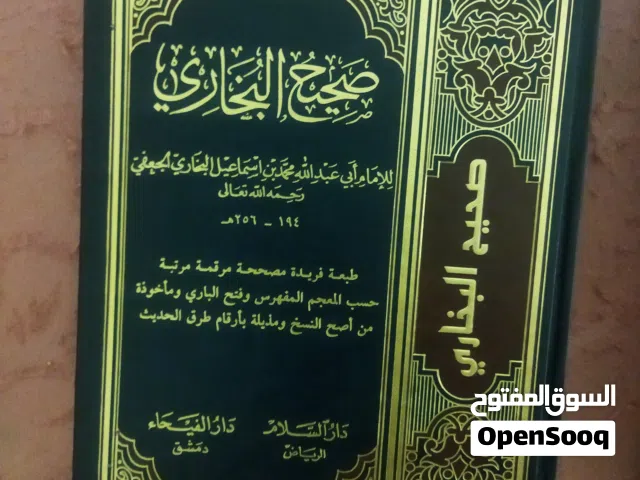 صحيح البخاري
للإمام أبي عبد الله محمد بن اسماعيل البخاري الجعفي
رحمه الله تعالى
١٩٤ - ٢٥٦ هـ
طبعة فريدة مصححة مرقمة مرتبة
حسب المعجم المفهرس وفتح الباري ومأخوذة
من أصح النسخ ومذيلة بأرقام طرق الحديث
دار السلام
الرياض
دار الفيحاء
دمشق
صحيح البخاري
السوق المفتوح
OpenSooq